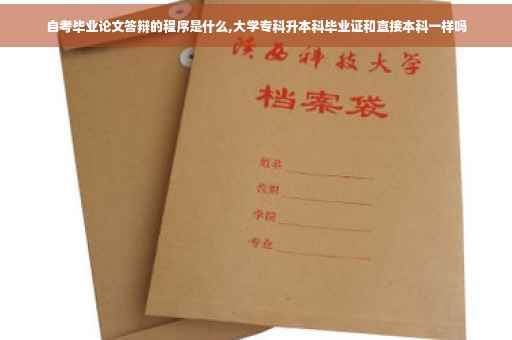 自考毕业论文答辩的程序是什么,大学专科升本科毕业证和直接本科一样吗
陕西科技大学
档案袋
姓名
学院
专业